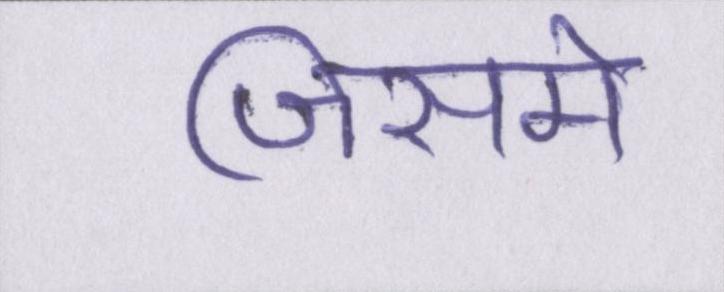 जिसमे